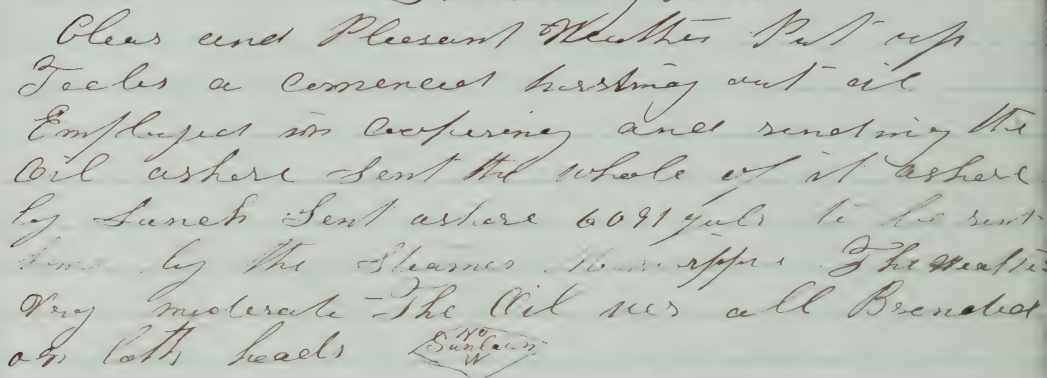 Clear and Pleasant Weather Put up
Tecles a comenced hoisting out oil
Employed in coopering and sending the
Oil ashore Sent the whole of it ashore
by Lunch Sent ashore 6091 gals to be sent
home by the Steamer The weather
very moderate - The Oil was all Brended
on both heads